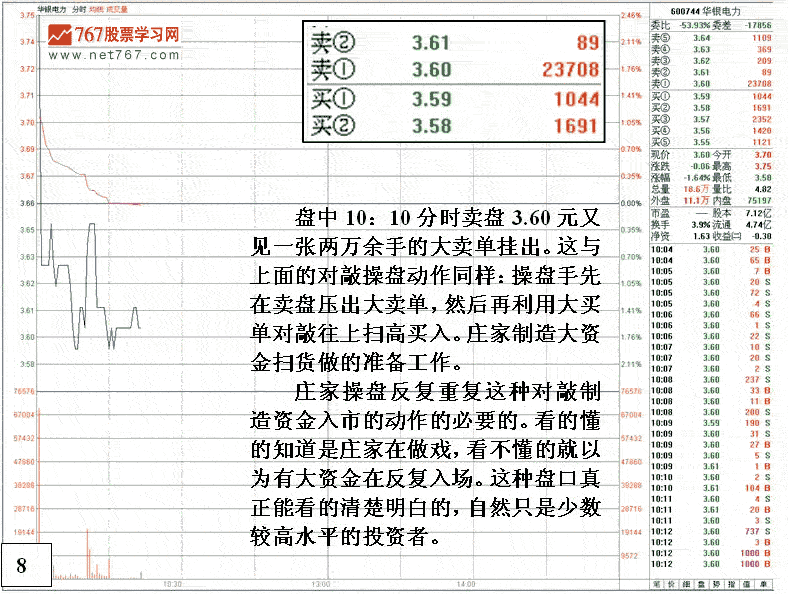 华银电力 分时 均线 成交量
767股票学习网
www.net767.com
卖② 3.61 89
卖① 3.60 23708
买① 3.59 1044
买② 3.58 1691
盘中10：10分时卖盘3.60元又
见一张两万余手的大卖单挂出。这与
上面的对敲操盘动作同样：操盘手先
在卖盘压出大卖单，然后再利用大买
单对敲往上扫高买入。庄家制造大资
金扫货做的准备工作。
庄家操盘反复重复这种对敲制
造资金入市的动作的必要的。看的懂
的知道是庄家在做戏，看不懂的就以
为有大资金在反复入场。这种盘口真
正能看的清楚明白的，自然只是少数
较高水平的投资者。
8
3.75
3.74
3.72
3.71
3.70
3.69
3.67
3.66
3.65
3.63
3.62
3.61
3.60
3.58
76578
67084
57432
47860
38288
28716
19144
2.46%
2.11%
1.76%
1.41%
1.05%
0.70%
0.35%
0.00%
0.35%
0.70%
1.05%
1.41%
1.76%
2.11%
76578
67084
57432
47860
38288
28716
19144
9572
10:30
13:00
14:00
600744 华银电力
委比 -53.93% 委差 -17856
卖⑤ 3.64 1109
卖④ 3.63 369
卖③ 3.62 209
卖② 3.61 89
卖① 3.60 23708
买① 3.59 1044
买② 3.58 1691
买③ 3.57 2352
买④ 3.56 1420
买⑤ 3.55 1121
现价 3.60 今开 3.70
涨跌 -0.06 最高 3.75
涨幅 -1.64% 最低 3.58
总量 18.6万 量比 4.82
外盘 11.1万 内盘 75197
市盈 — 股本 7.12亿
换手 3.9% 流通 4.74亿
净资 1.63 收益㈡ -0.30
10:04 3.60 25 B
10:04 3.60 65 B
10:05 3.60 7 B
10:05 3.60 20 S
10:05 3.60 72 S
10:05 3.60 4 S
10:06 3.60 66 S
10:06 3.60 1 S
10:06 3.60 22 S
10:07 3.60 10 S
10:07 3.60 20 S
10:07 3.60 2 S
10:08 3.60 237 S
10:08 3.60 33 B
10:08 3.60 11 B
10:08 3.60 200 S
10:09 3.59 190 S
10:09 3.60 31 S
10:09 3.60 27 B
10:09 3.60 5 S
10:09 3.61 1 B
10:10 3.60 2 S
10:10 3.61 104 B
10:11 3.60 4 S
10:11 3.61 20 B
10:11 3.60 3 S
10:12 3.60 737 S
10:12 3.60 3 B
10:12 3.60 1000 B
10:12 3.60 1000 B
笔 价 细 盘 势 指 值 单